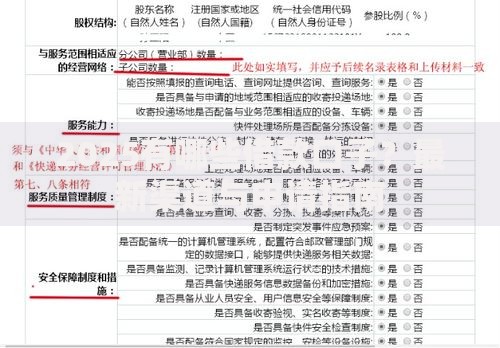 股权结构:
股东名称
（自然人姓名）
注册国家或地区
（自然人国籍）
统一社会信用代码
（自然人身份证号）
参股比例（%）
与服务范围相适应的经营网络:
分公司（营业部）数量:
子公司数量:
此处如实填写，并应予后续名录表格和上传材料一致
服务能力:
能否按照填报的查询电话、查询网址提供咨询、查询服务: 是 否
是否具备与申请的地域范围相适应的收寄投递场地: 是 否
收寄投递场地是否配备与业务范围相适应的设备、车辆: 是 否
快件处理场所是否配备分拣设备: 是 否
须与《中华
和《快递业务经营许可管理办法》
第七、八条相符
服务质量管理制度:
是否具备业务查询、收寄、分拣、投递等操作规范: 是 否
是否制定突发事件应急预案: 是 否
安全保障制度和措施:
是否配备统一的计算机管理系统，配置符合邮政管理部门规定的数据接口，能够提供快递服务相关数据: 是 否
是否具备监测、记录计算机管理系统运行状态的技术措施: 是 否
是否具备快递服务信息数据备份和加密措施: 是 否
是否具备从业人员安全、用户信息安全等保障制度: 是 否
是否具备收寄验视、实名收寄等制度: 是 否
是否具备快件安全检查制度: 是 否
是否配备符合国家规定的监控、安检等设备设施: 是 否